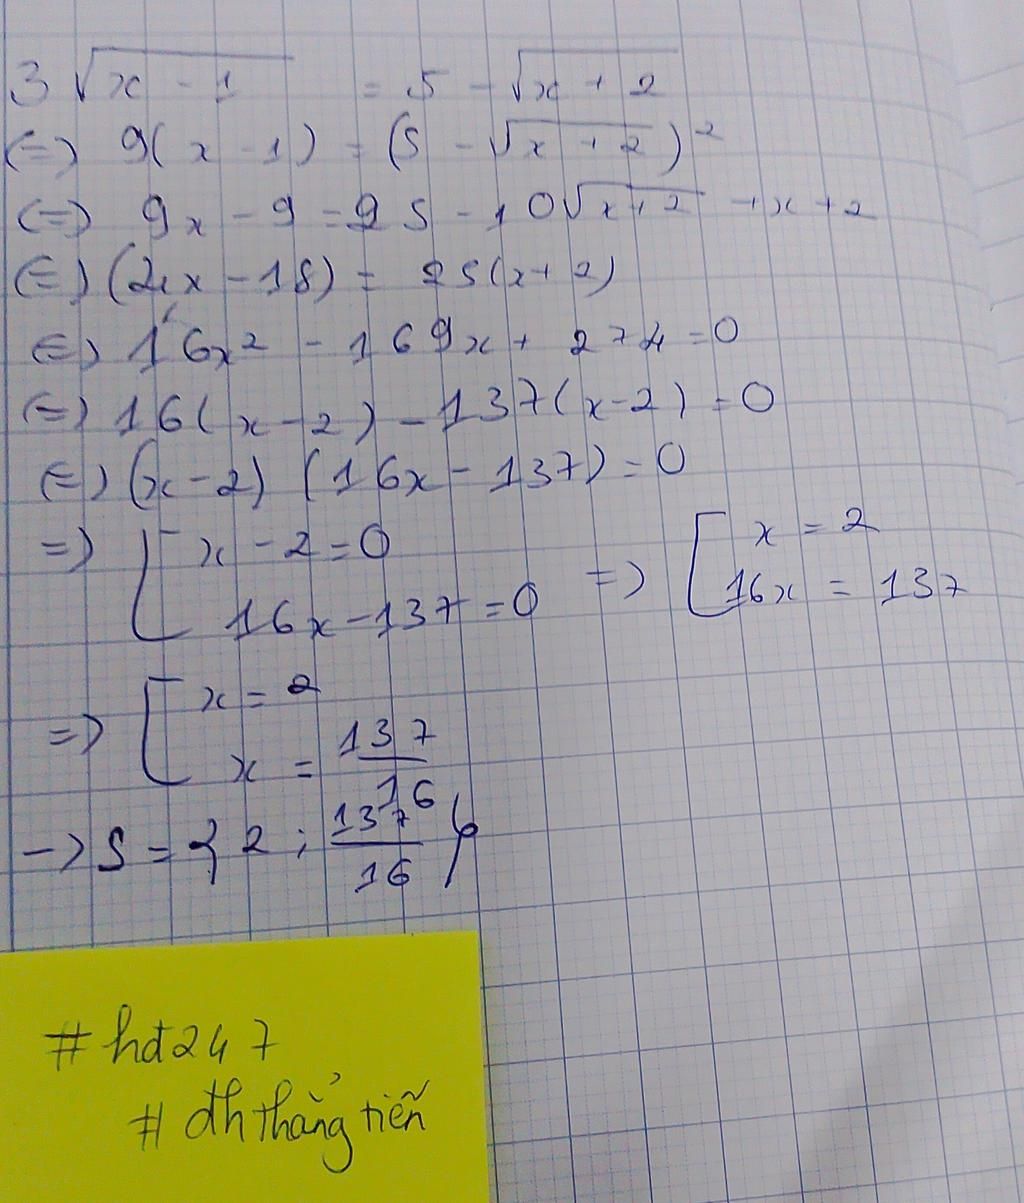 3√(x - 1) = 5 - √(x + 2)
(=) 9(x - 1) = (5 - √(x + 2))²
(=) 9x - 9 = 25 - 10√(x + 2) + x + 2
(=) (4x - 18) = 25(x + 2)
(=) 16x² - 169x + 274 = 0
(=) 16(x - 2) - 137(x - 2) = 0
(=) (x - 2) (16x - 137) = 0
=> [ x - 2 = 0 => [ x = 2
16x - 137 = 0 16x = 137
=> [ x = 2
x = 137/16
-> S = { 2 ; 137/16 }
#hđ247
#đh thẳng tiến